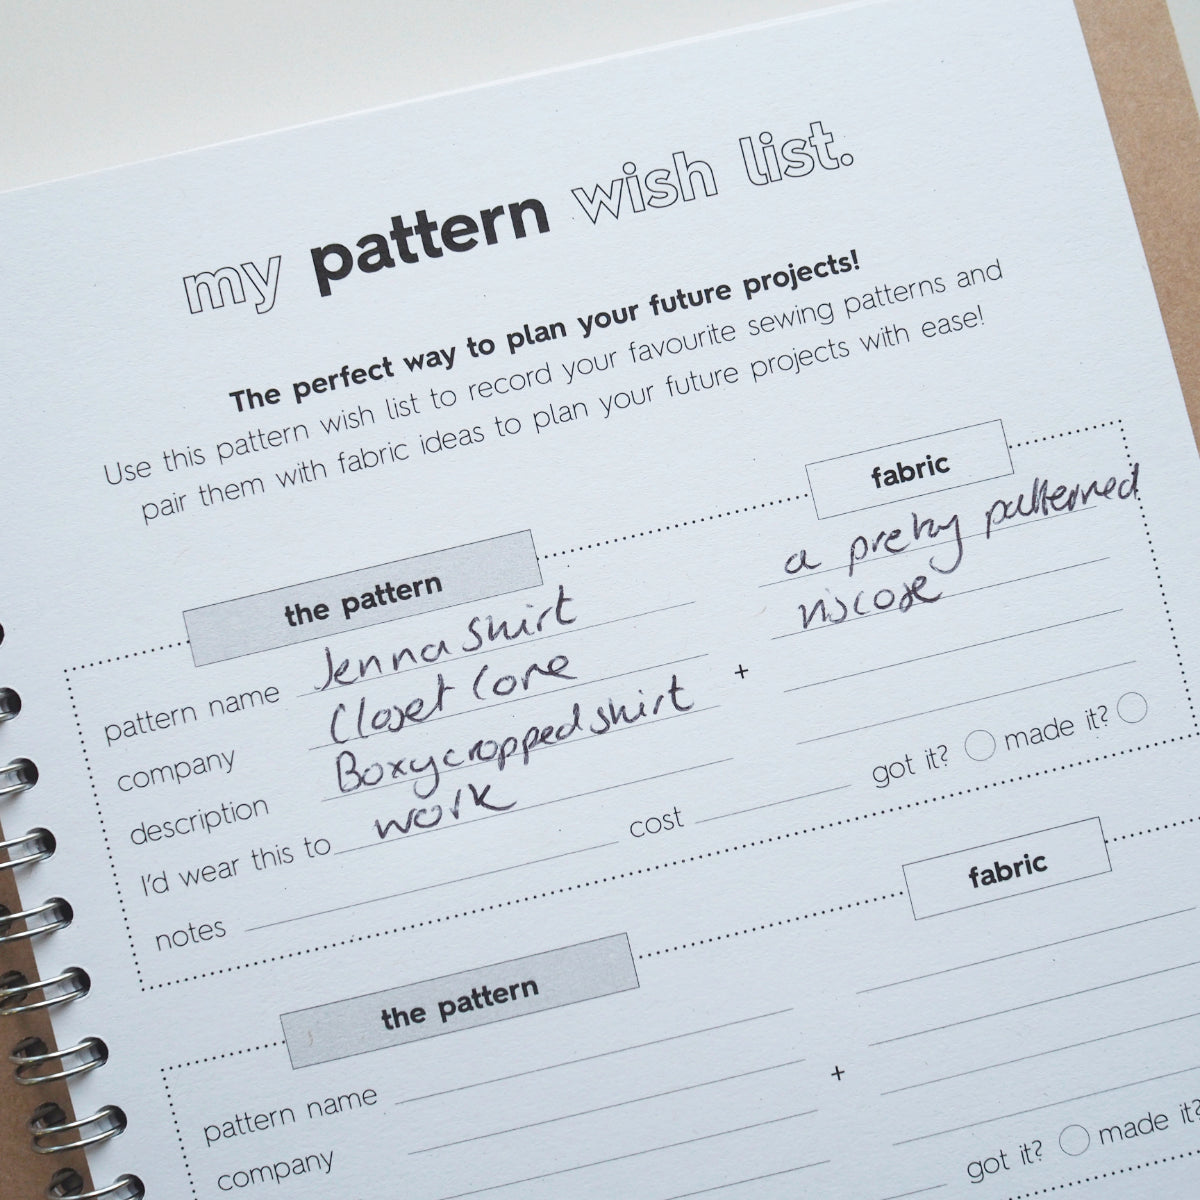 my pattern wish list.
The perfect way to plan your future projects!
Use this pattern wish list to record your favourite sewing patterns and
pair them with fabric ideas to plan your future projects with ease!
the pattern
fabric
pattern name Jenna Shirt
company Closet Core
description Boxy cropped shirt
I'd wear this to work
notes
cost
+
a pretty patterned
viscose
got it? made it?
the pattern
fabric
pattern name
company
+
got it? made it?